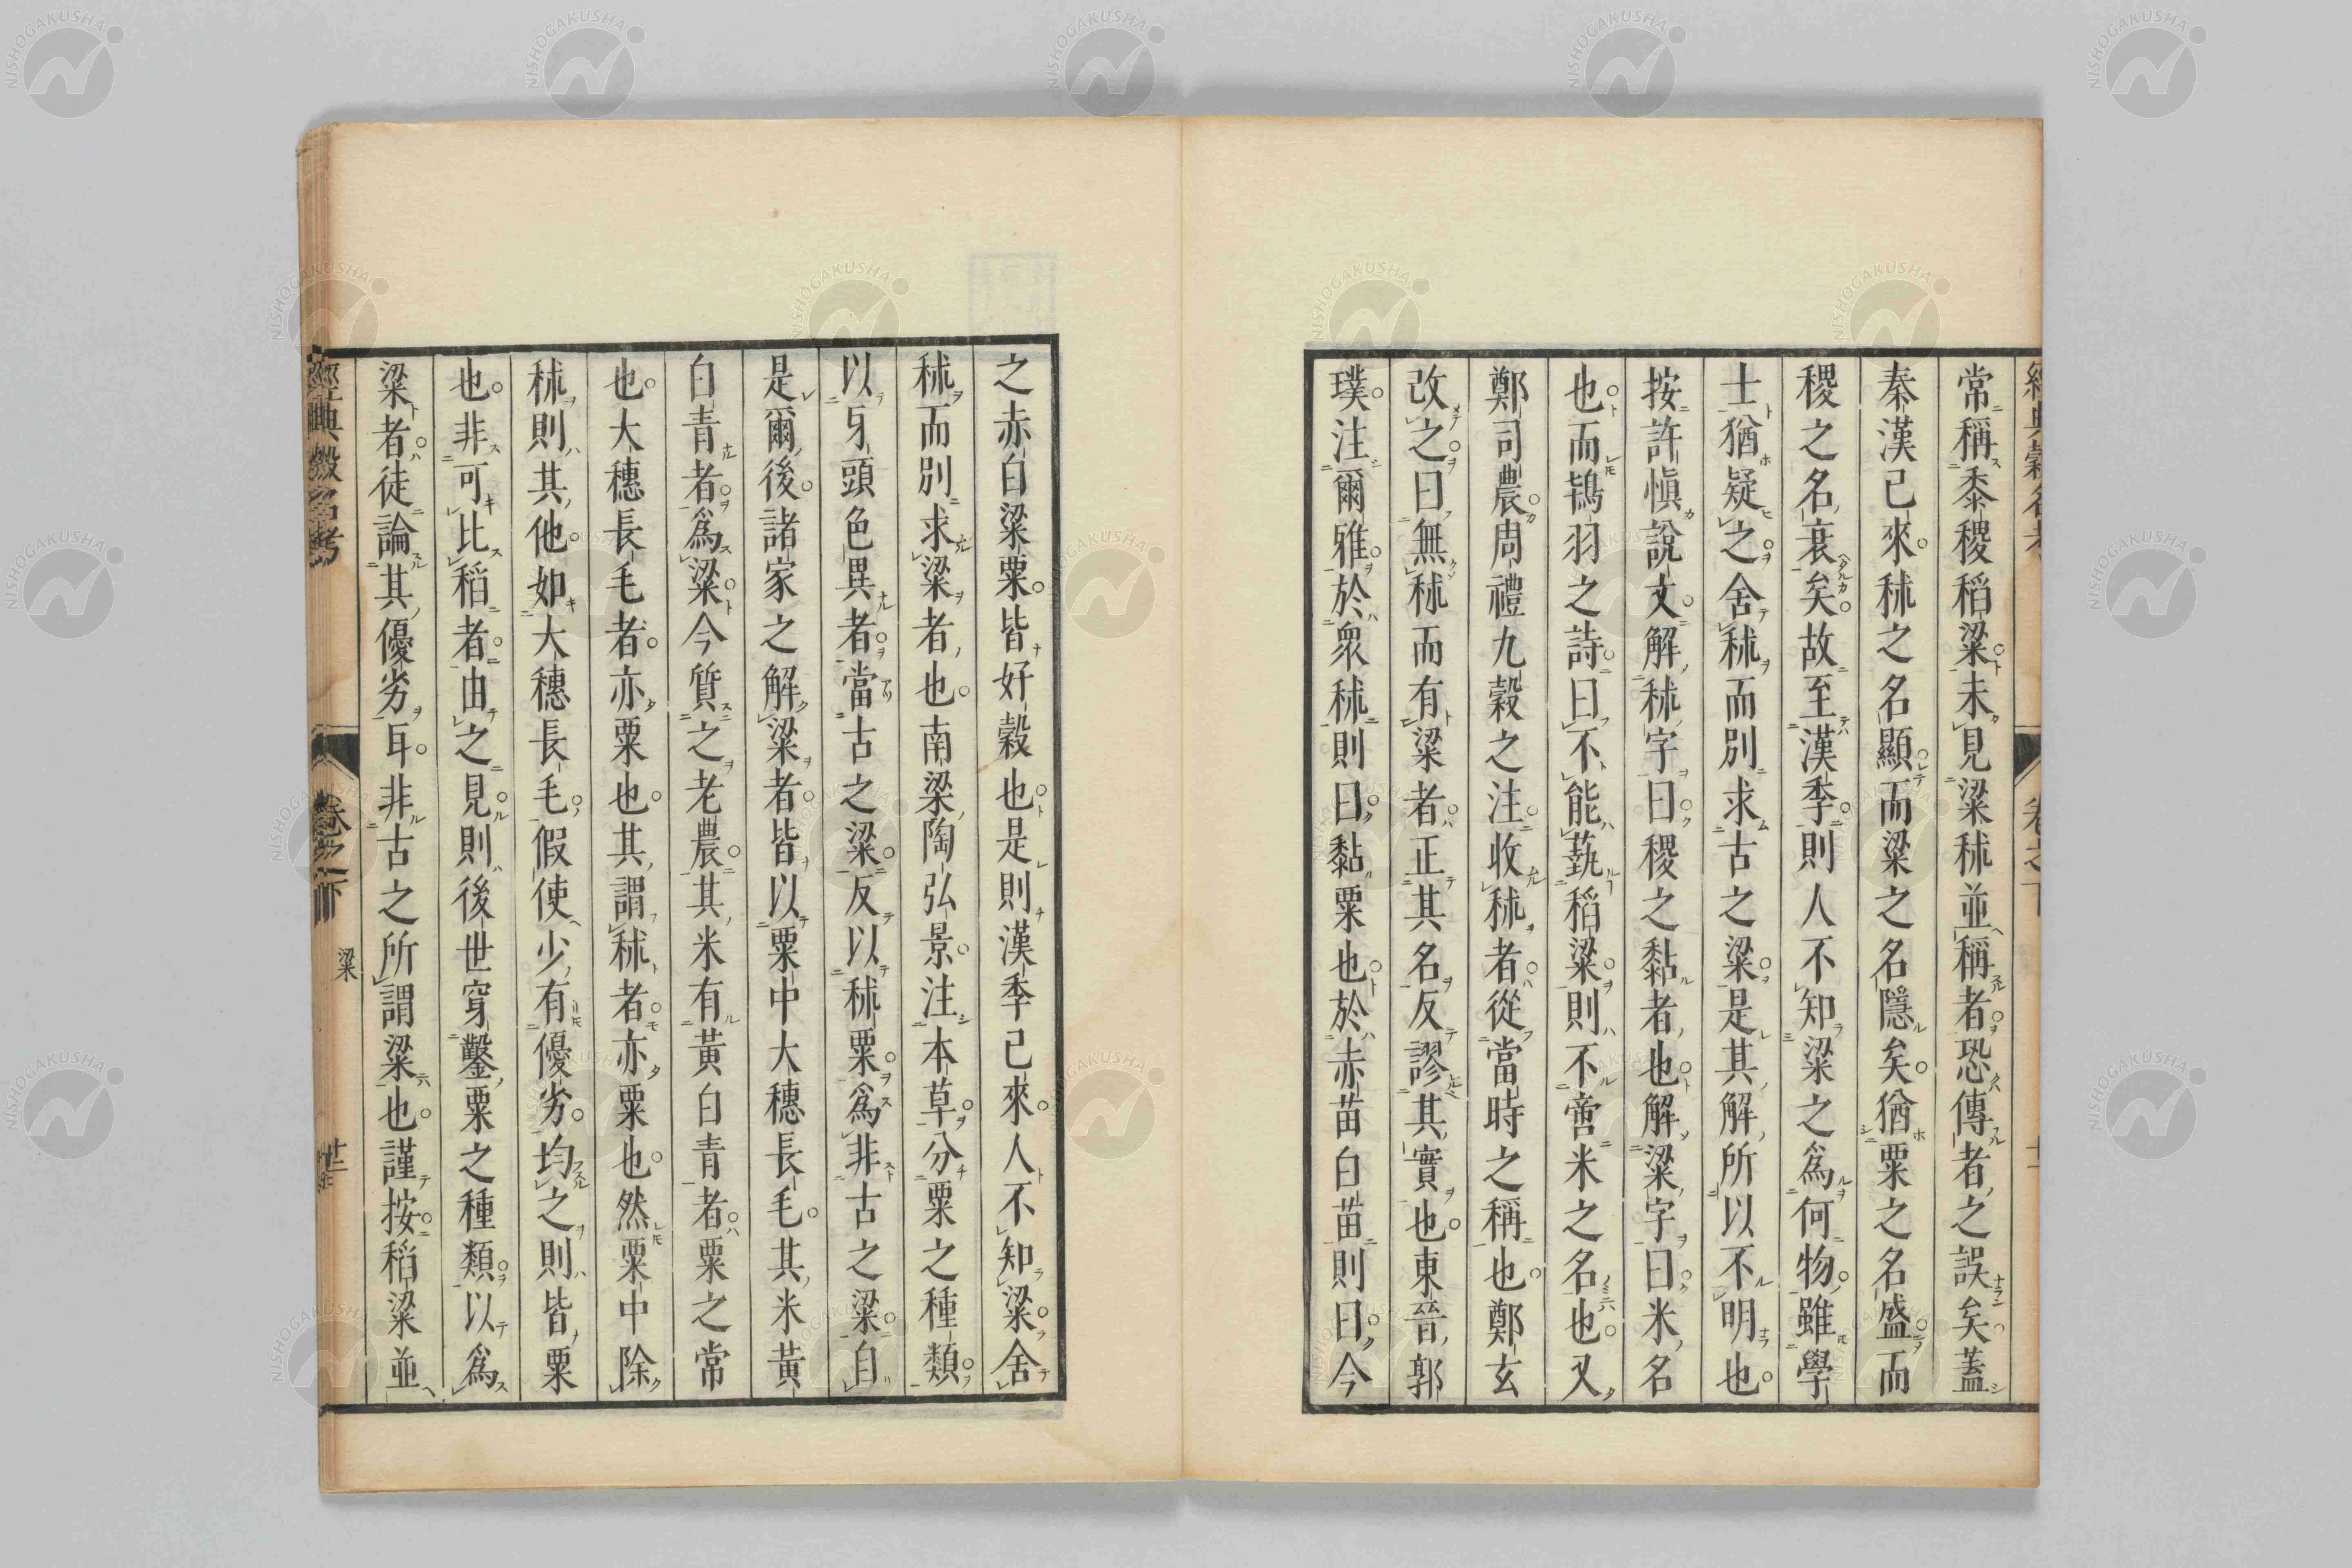 常稱黍稷稻粱未見粱秫並稱者恐傳者之誤矣蓋
秦漢已來秫之名顯而粱之名隱矣猶粟之名盛而
稷之名衰矣故至漢季則人不知粱之爲何物雖學
士猶疑之舍秫而別求古之粱是其解所以不明也
按許愼說文解秫字曰稷之黏者也解粱字曰米名
也而鴇羽之詩曰不能蓺稻粱則不啻米之名也又
鄭司農周禮九穀之注收秫者從當時之稱也鄭玄
改之曰無秫而有粱者正其名反謬其實也東晉郭
璞注爾雅於衆秫則曰黏粟也於赤苗白苗則曰今
之赤白粱粟皆好穀也是則漢季已來人不知粱舍
秫而別求粱者也南梁陶弘景注本草分粟之種類
以牙頭色異者當古之粱反以秫粟爲非古之粱自
是爾後諸家之解粱者皆以粟中大穗長毛其米黃
白青者爲粱今質之老農其米有黃白青者粟之常
也大穗長毛者亦粟也其謂秫者亦粟也然粟中除
秫則其他如大穗長毛假使少有優劣均之則皆粟
也非可比稻者由之見則後世穿鑿粟之種類以爲
粱者徒論其優劣耳非古之所謂粱也謹按稻粱並
經典穀名考
卷之下
粱
NISHOGAKUSHA